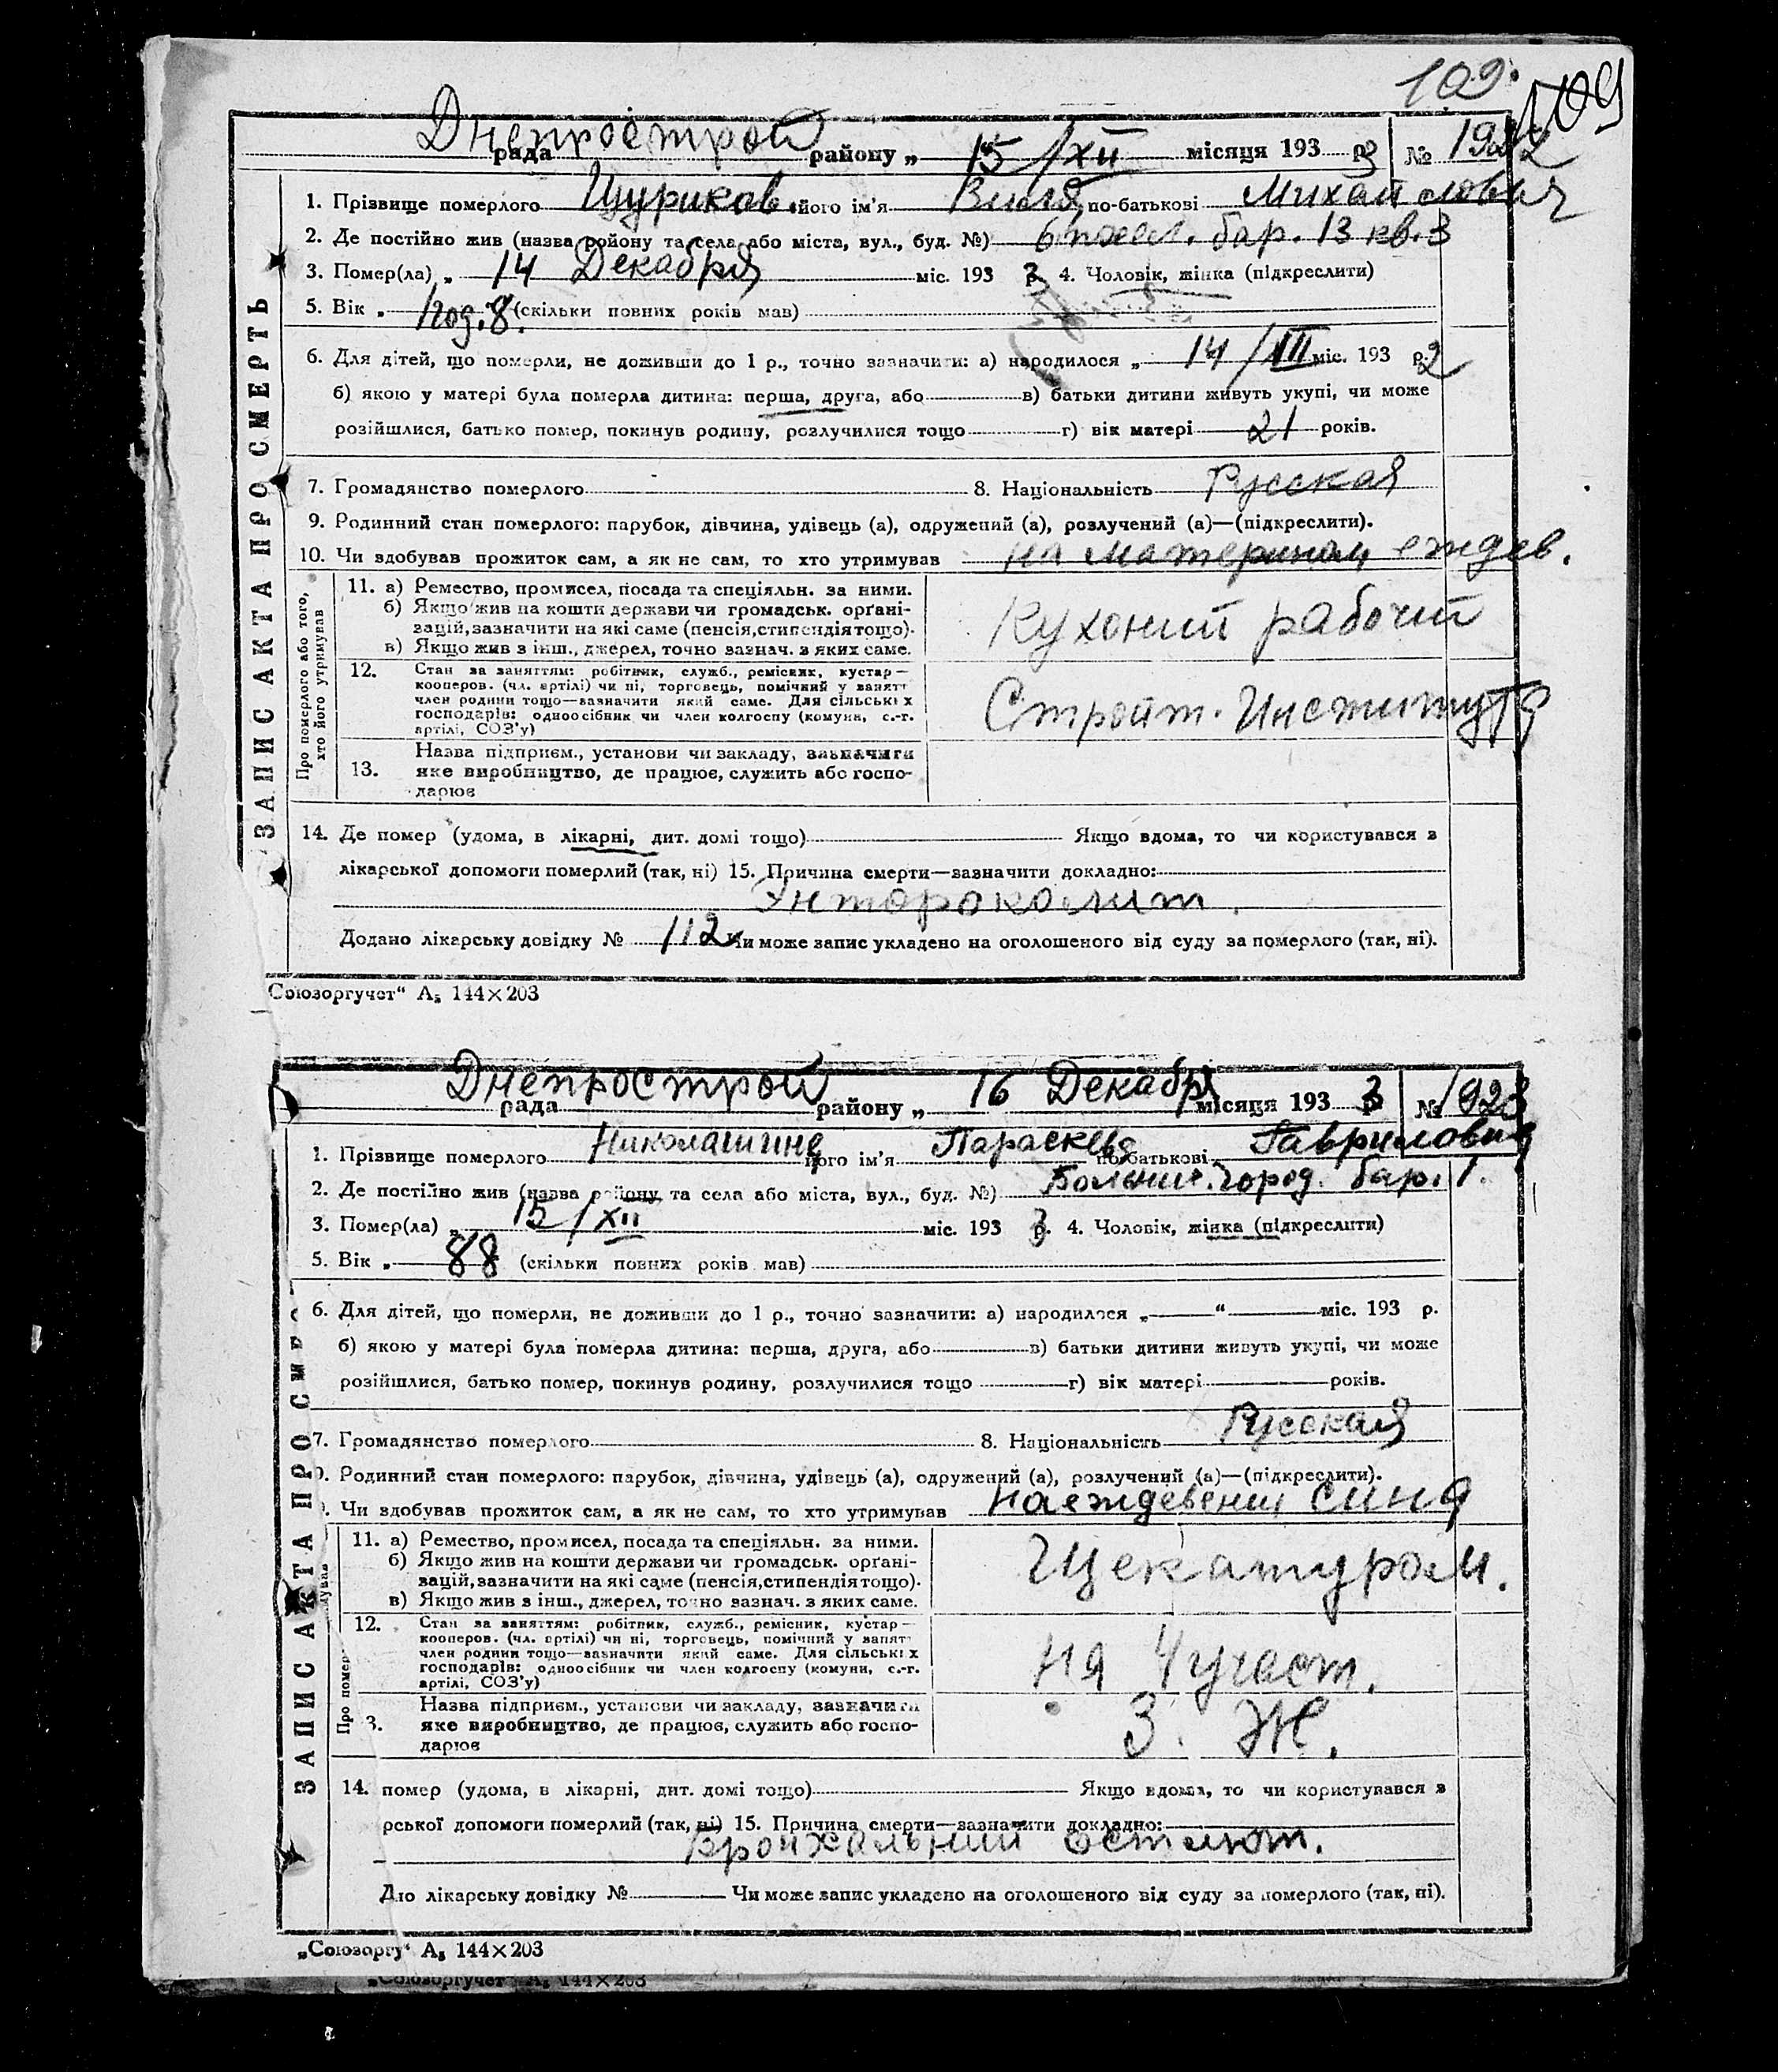 109.
109
Днепрострой
рада району „ 15/XII місяця 193 3 р. № 1922
1. Прізвище померлого Щуриков його ім'я Витя по-батькові Михайлович
2. Де постійно жив (назва району та села або міста, вул., буд. №) 6 посел. бар. 13 кв. 3
3. Помер(ла) „ 14 Декабря міс. 193 3 р. 4. Чоловік, жінка (підкреслити)
5. Вік „ 1 год. 8. (скільки повних років мав)
6. Для дітей, що померли, не доживши до 1 р., точно зазначити: а) народилося „ 14/III міс. 193 р. 2
б) якою у матері була померла дитина: перша, друга, або в) батьки дитини живуть укупі, чи може
розійшлися, батько помер, покинув родину, розлучилися тощо г) вік матері 21 років.
7. Громадянство померлого 8. Національність Русская
9. Родинний стан померлого: парубок, дівчина, удівець (а), одружений (а), розлучений (а)—(підкреслити).
10. Чи здобував прожиток сам, а як не сам, то хто утримував на материном еждев.
ЗАПИС АКТА ПРО СМЕРТЬ
Про померлого або того,
хто його утримував
11. а) Ремество, промисел, посада та спеціяльн. за ними.
б) Якщо жив на кошти держави чи громадськ. орґані-
зацій, зазначити на які саме (пенсія, стипендія тощо).
в) Якщо жив з інш., джерел, точно зазнач. з яких саме.
Кухоний рабочий
12. Стан за заняттям: робітник, служб., ремісник, кустар—
кооперов. (чл. артілі) чи ні, торговець, помічний у занятт
член родини тощо—зазначити який саме. Для сільськіх
господарів: одноосібник чи член колгоспу (комуни, с.-г.
артілі, СОЗ'у)
Стройт. Института
Назва підприєм., установи чи закладу, зазначити
13. яке виробництво, де працює, служить або госпо-
дарює
14. Де помер (удома, в лікарні, дит. домі тощо) Якщо вдома, то чи користувався з
лікарської допомоги померлий (так, ні) 15. Причина смерти—зазначити докладно:
Энтороколит.
Додано лікарську довідку № 112 Чи може запис укладено на оголошеного від суду за померлого (так, ні).
Союзоргучет“ А₅ 144×203
Днепрострой
рада району „ 16 Декабря місяця 193 3 № 1923
1. Прізвище померлого Николашина його ім'я Параскева по-батькові Гавриловна
2. Де постійно жив (назва району та села або міста, вул., буд. №) Больнич. город. бар. 1.
3. Помер(ла) „ 15/XII міс. 193 3 р. 4. Чоловік, жінка (підкреслити)
5. Вік „ 88 (скільки повних років мав)
6. Для дітей, що померли, не доживши до 1 р., точно зазначити: а) народилося „ “ міс. 193 р.
б) якою у матері була померла дитина: перша, друга, або в) батьки дитини живуть укупі, чи може
розійшлися, батько помер, покинув родину, розлучилися тощо г) вік матері років.
7. Громадянство померлого 8. Національність Русская
9. Родинний стан померлого: парубок, дівчина, удівець (а), одружений (а), розлучений (а)—(підкреслити).
. Чи здобував прожиток сам, а як не сам, то хто утримував на еждевении сина
ЗАПИС АКТА ПРО СМЕ
Про помер
11. а) Ремество, промисел, посада та спеціяльн. за ними.
б) Якщо жив на кошти держави чи громадськ. орґані-
зацій, зазначити на які саме (пенсія, стипендія тощо).
в) Якщо жив з інш., джерел, точно зазнач. з яких саме.
Щекатуром.
12. Стан за заняттям: робітник, служб., ремісник, кустар—
кооперов. (чл. артілі) чи ні, торговець, помічний у занятт
член родини тощо—зазначити який саме. Для сільськіх
господарів: одноосібник чи член колгоспу (комуни, с.-г.
артілі, СОЗ'у)
на 4 участ.
Назва підприєм., установи чи закладу, зазначити
3. яке виробництво, де працює, служить або госпо-
дарює
З. Ж.
14. помер (удома, в лікарні, дит. домі тощо) Якщо вдома, то чи користувався з
рської допомоги померлий (так, ні) 15. Причина смерти—зазначити докладно:
Бронхальний
Д но лікарську довідку № Чи може запис укладено на оголошеного від суду за померлого (так, ні).
„Союзоргу“ А₅ 144×203
„Союзоргучет“ А₅ 144×203